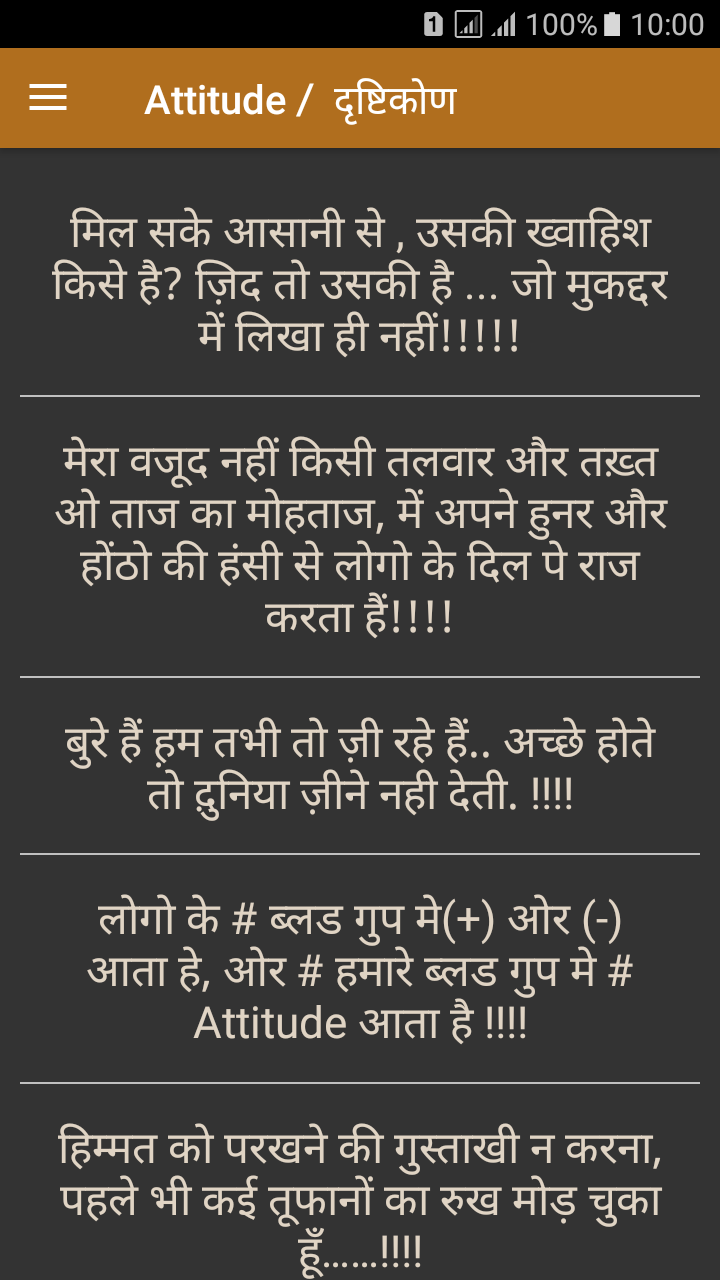 1 100% 10:00
Attitude / दृष्टिकोण
मिल सके आसानी से , उसकी ख्वाहिश
किसे है? ज़िद तो उसकी है ... जो मुकद्दर
में लिखा ही नहीं!!!!!
मेरा वजूद नहीं किसी तलवार और तख़्त
ओ ताज का मोहताज, में अपने हुनर और
होंठो की हंसी से लोगो के दिल पे राज
करता हैं!!!!
बुरे हैं ह़म तभी तो ज़ी रहे हैं.. अच्छे होते
तो द़ुनिया ज़ीने नही देती. !!!!
लोगो के # ब्लड गुप मे(+) ओर (-)
आता हे, ओर # हमारे ब्लड गुप मे #
Attitude आता है !!!!
हिम्मत को परखने की गुस्ताखी न करना,
पहले भी कई तूफानों का रुख मोड़ चुका
हूँ......!!!!